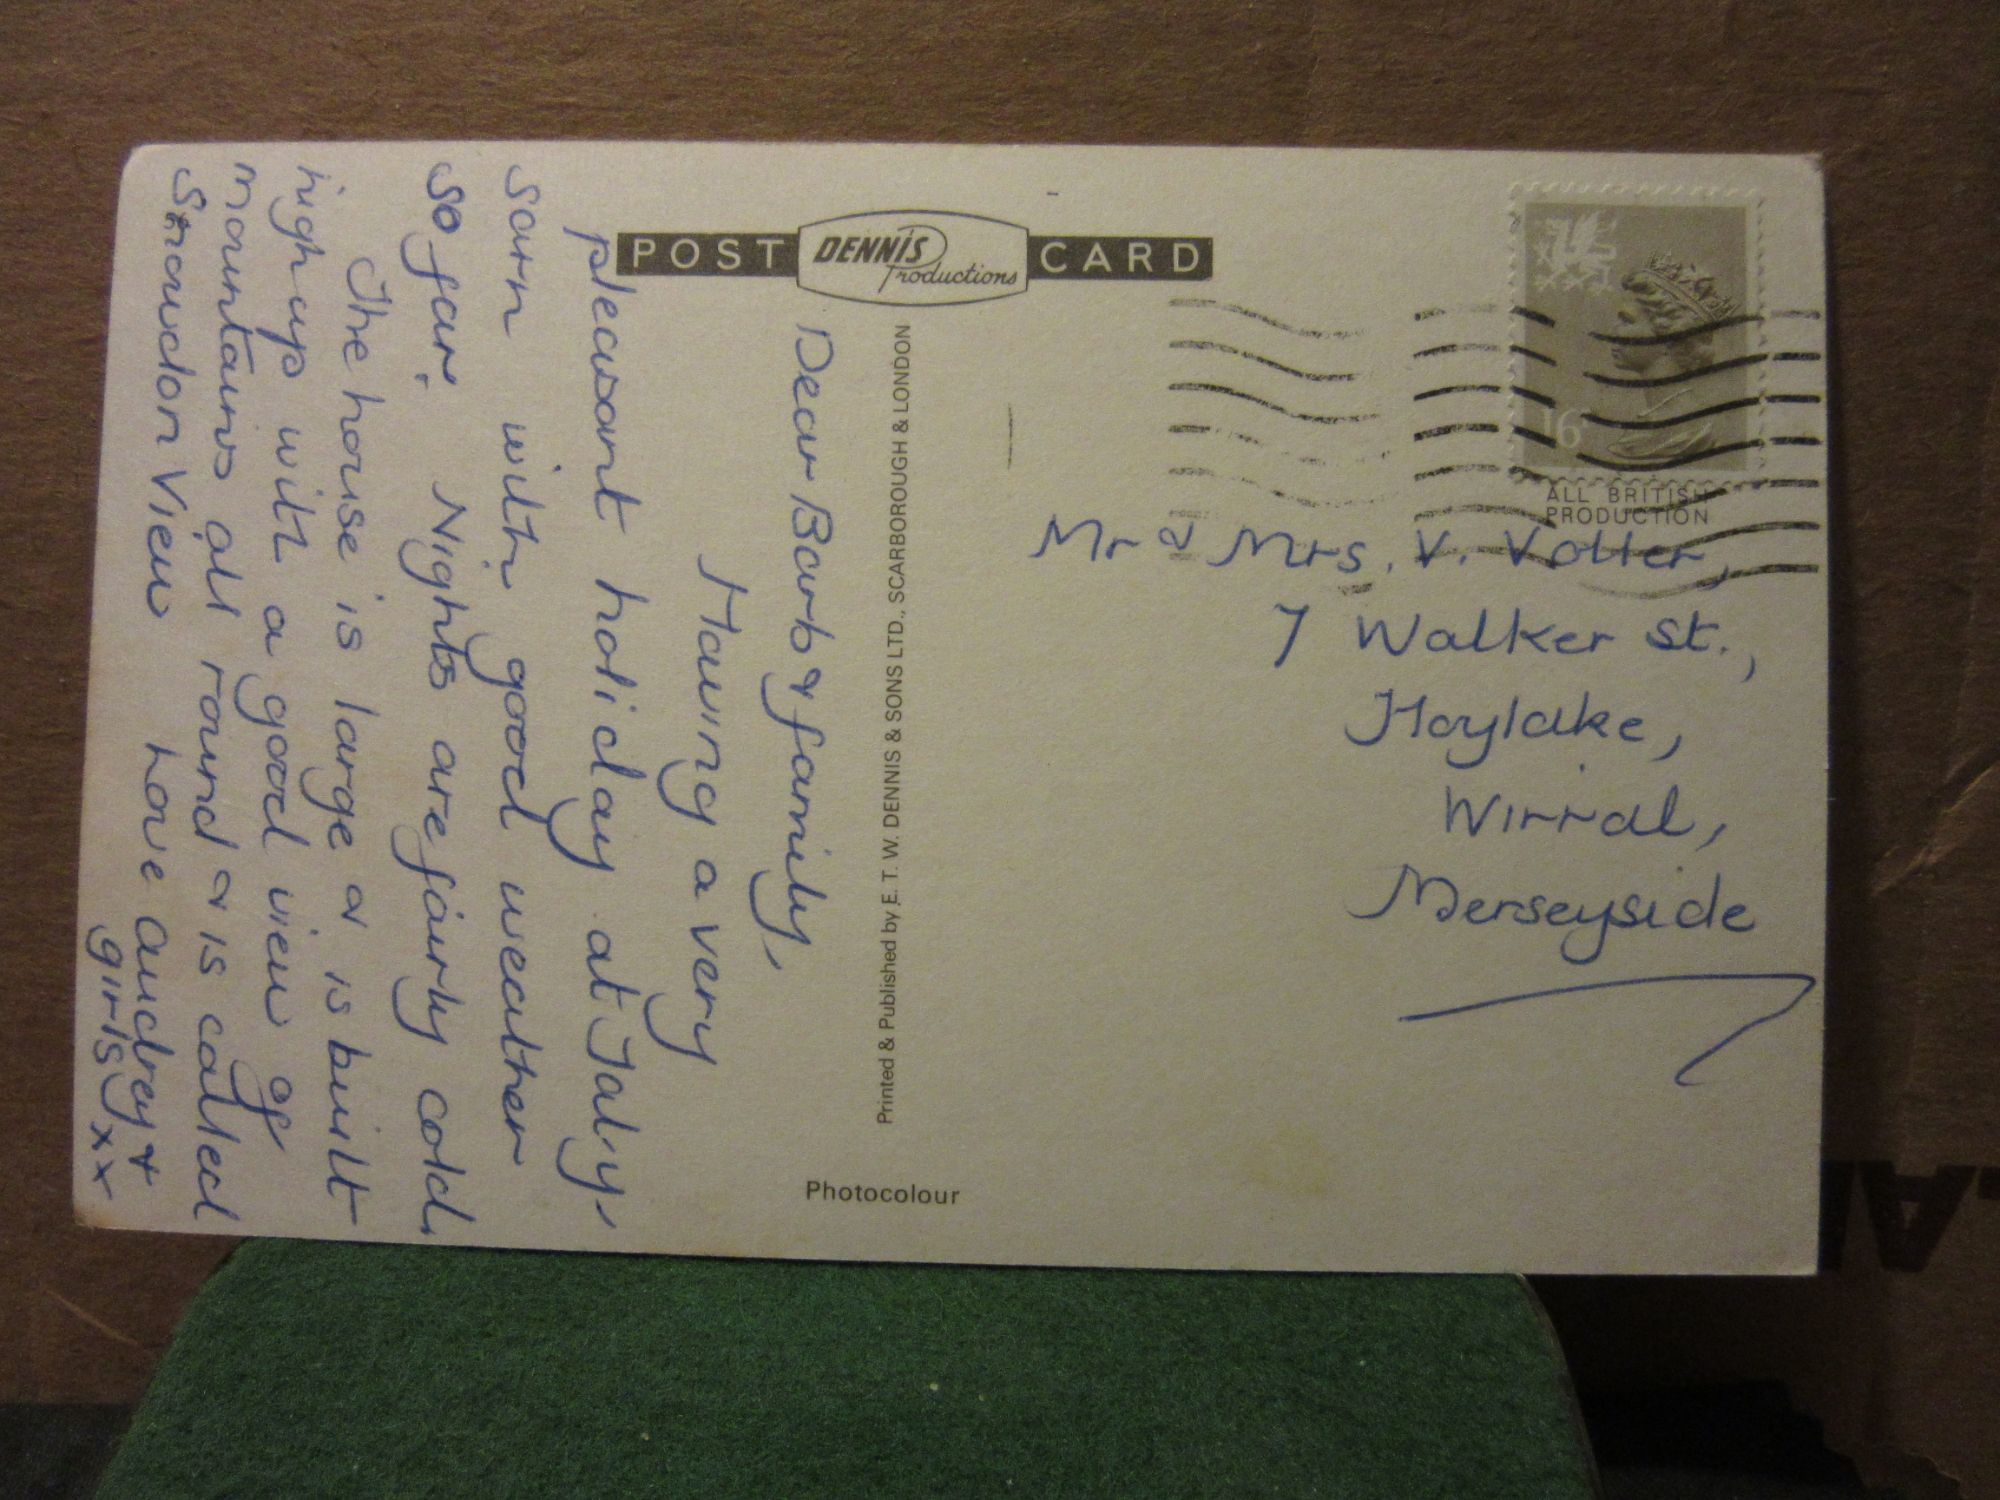 POST DENNIS Productions CARD
Dear Barb & family,
Having a very
pleasant holiday at Taly
sarn with good weather
so far. Nights are fairly cold.
The house is large & is built
high up with a good view of
mountains all round & is called
Snowdon View Love Audrey &
girls xx
Printed & Published by E. T. W. DENNIS & SONS LTD., SCARBOROUGH & LONDON
Photocolour
16
ALL BRITISH
PRODUCTION
Mr & Mrs. V. Volter,
7 Walker St.,
Hoylake,
Wirral,
Merseyside